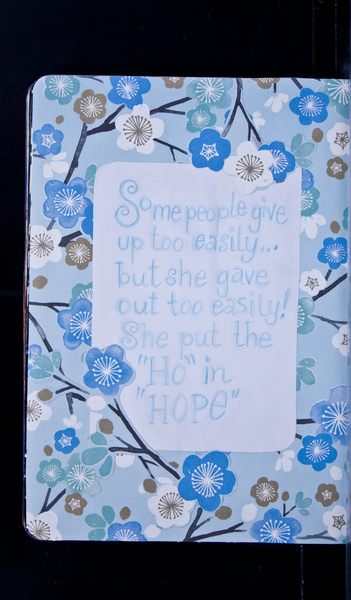 Some people give
up too easily...
but she gave
out too easily!
She put the
"Ho" in
"HOPE"